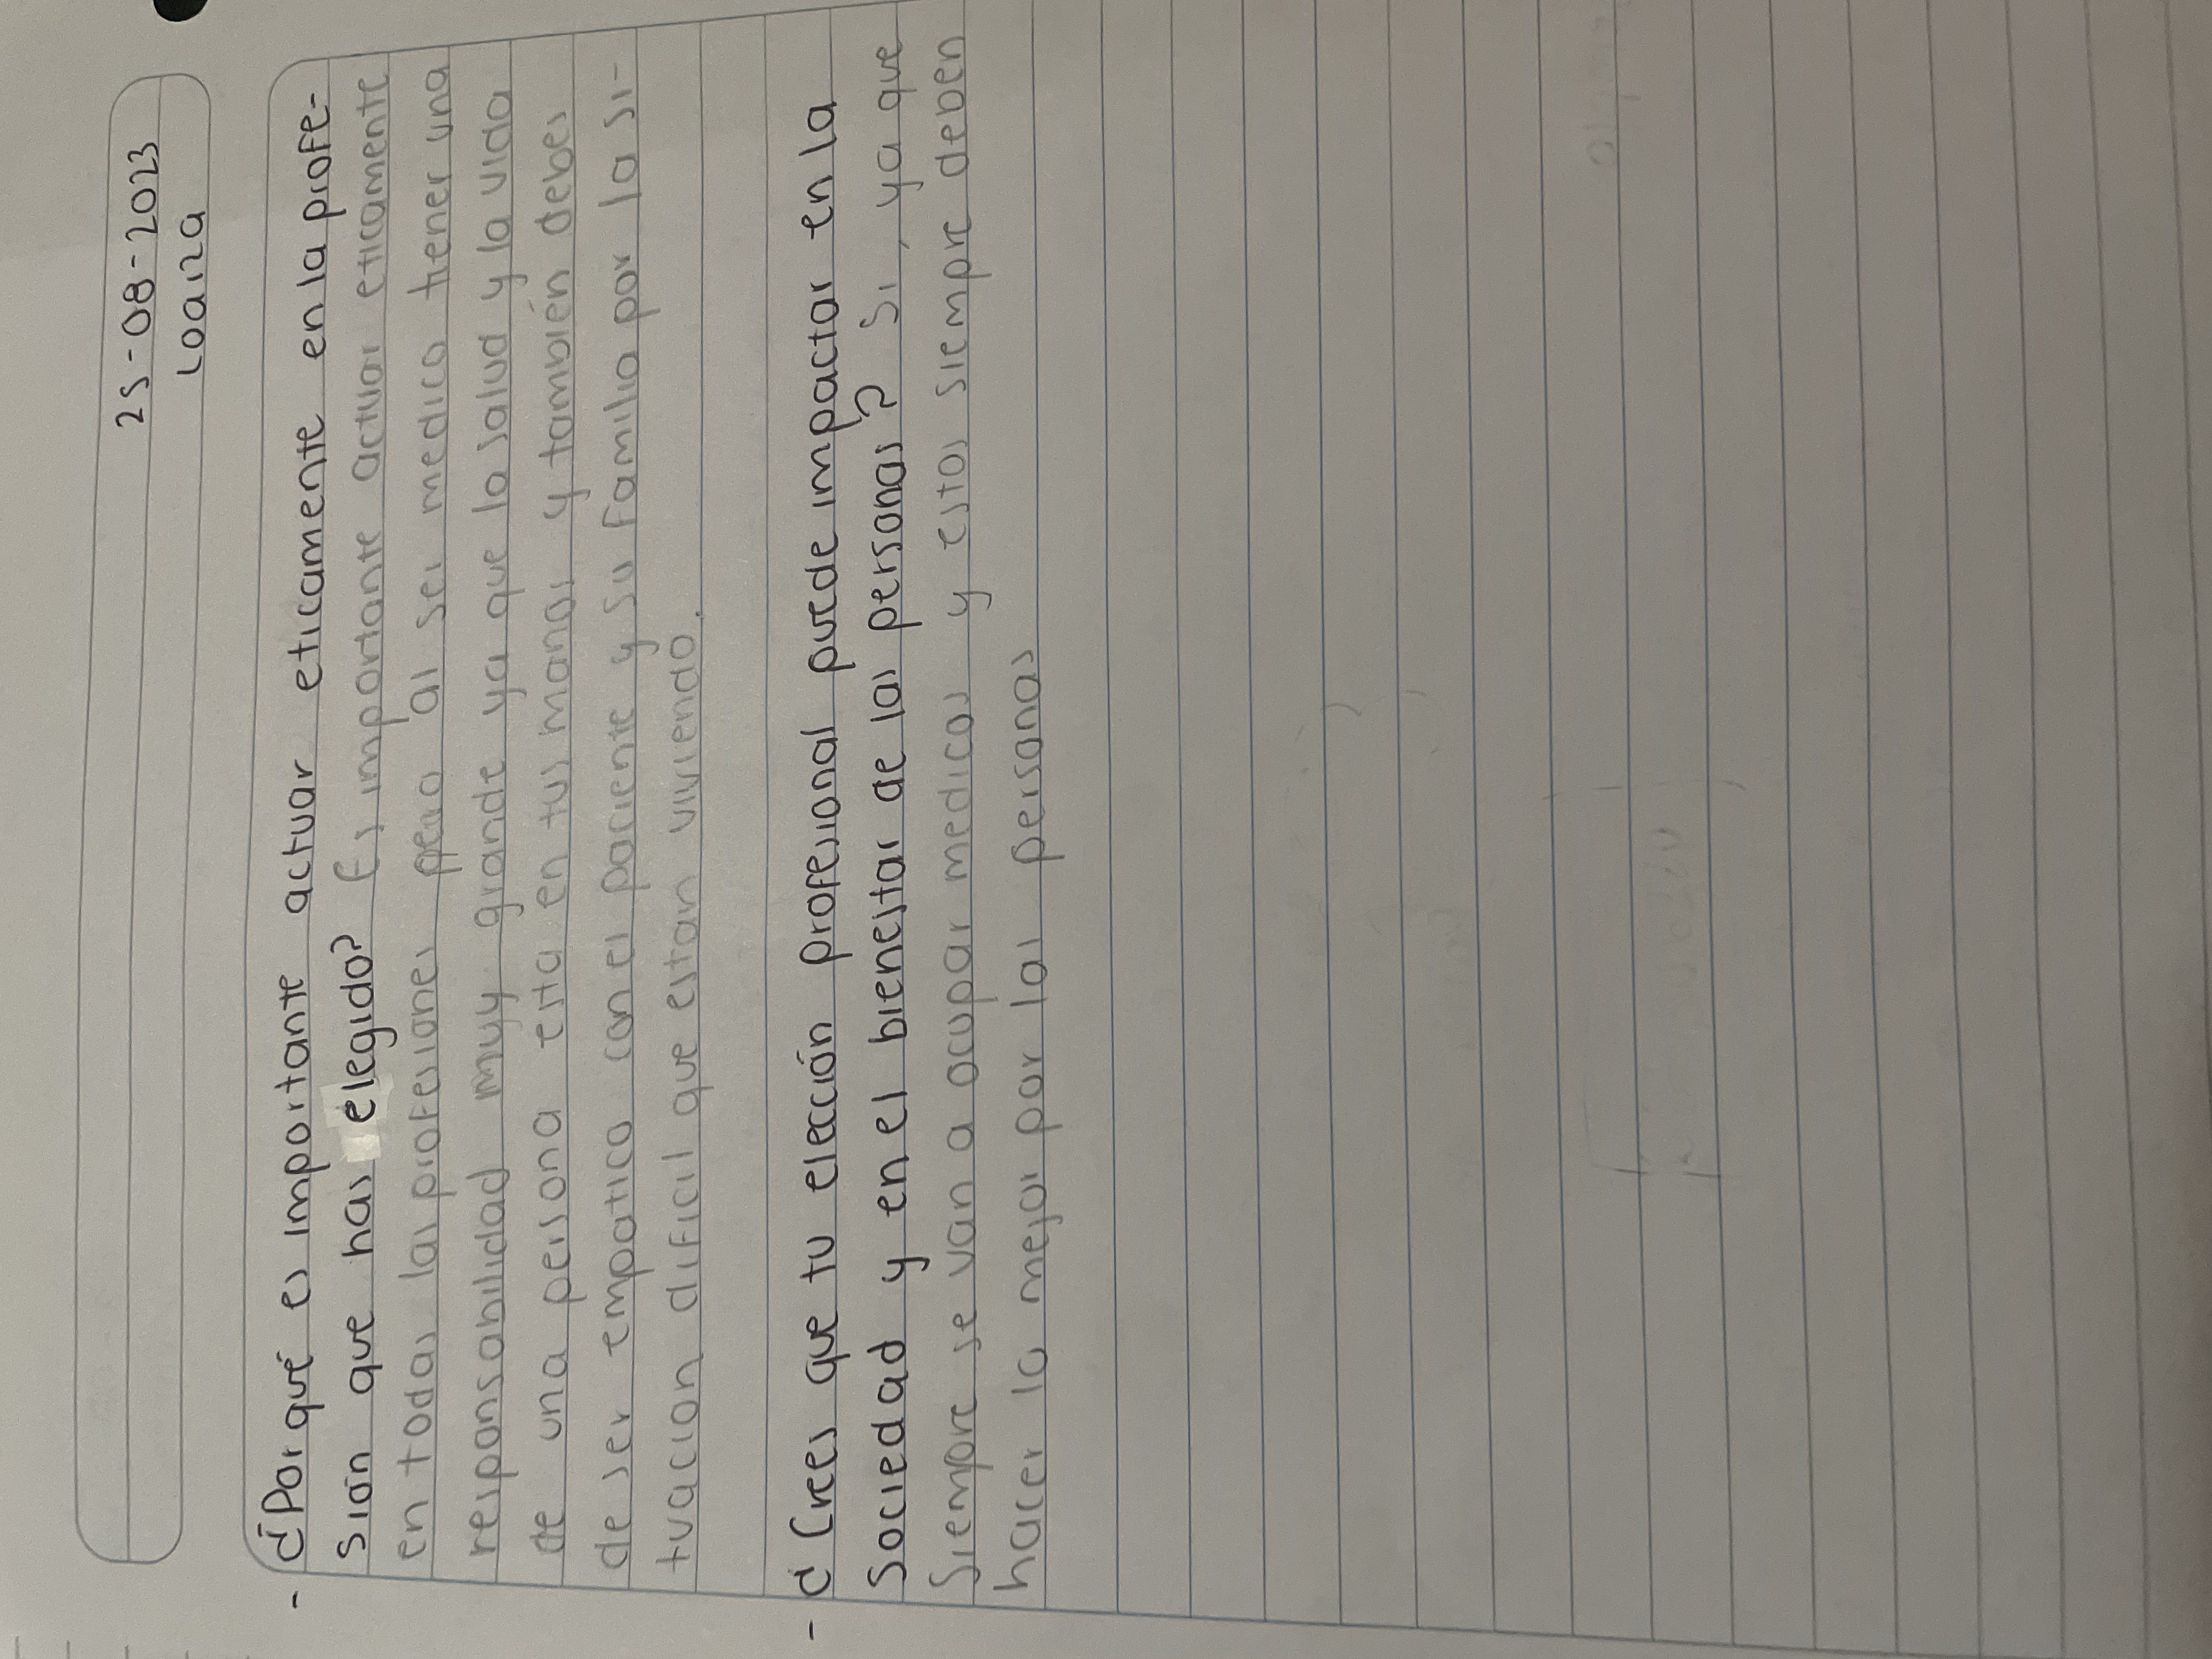 25-08-2023
Loaiza
- ¿Por qué es importante actuar eticamente en la profe-
sión que has elegido? Es importante actuar eticamente
en todas las profesiones pero al ser medico tener una
responsabilidad muy grande ya que la salud y la vida
de una persona esta en tus manos y también debes
de ser empatico con el paciente y su familia por la si-
tuacion dificil que estan viviendo.
- ¿Crees que tu elección profesional puede impactar en la
sociedad y en el bienestar de las personas? Si, ya que
siempre se van a ocupar medicos y estos siempre deben
hacer lo mejor por las personas